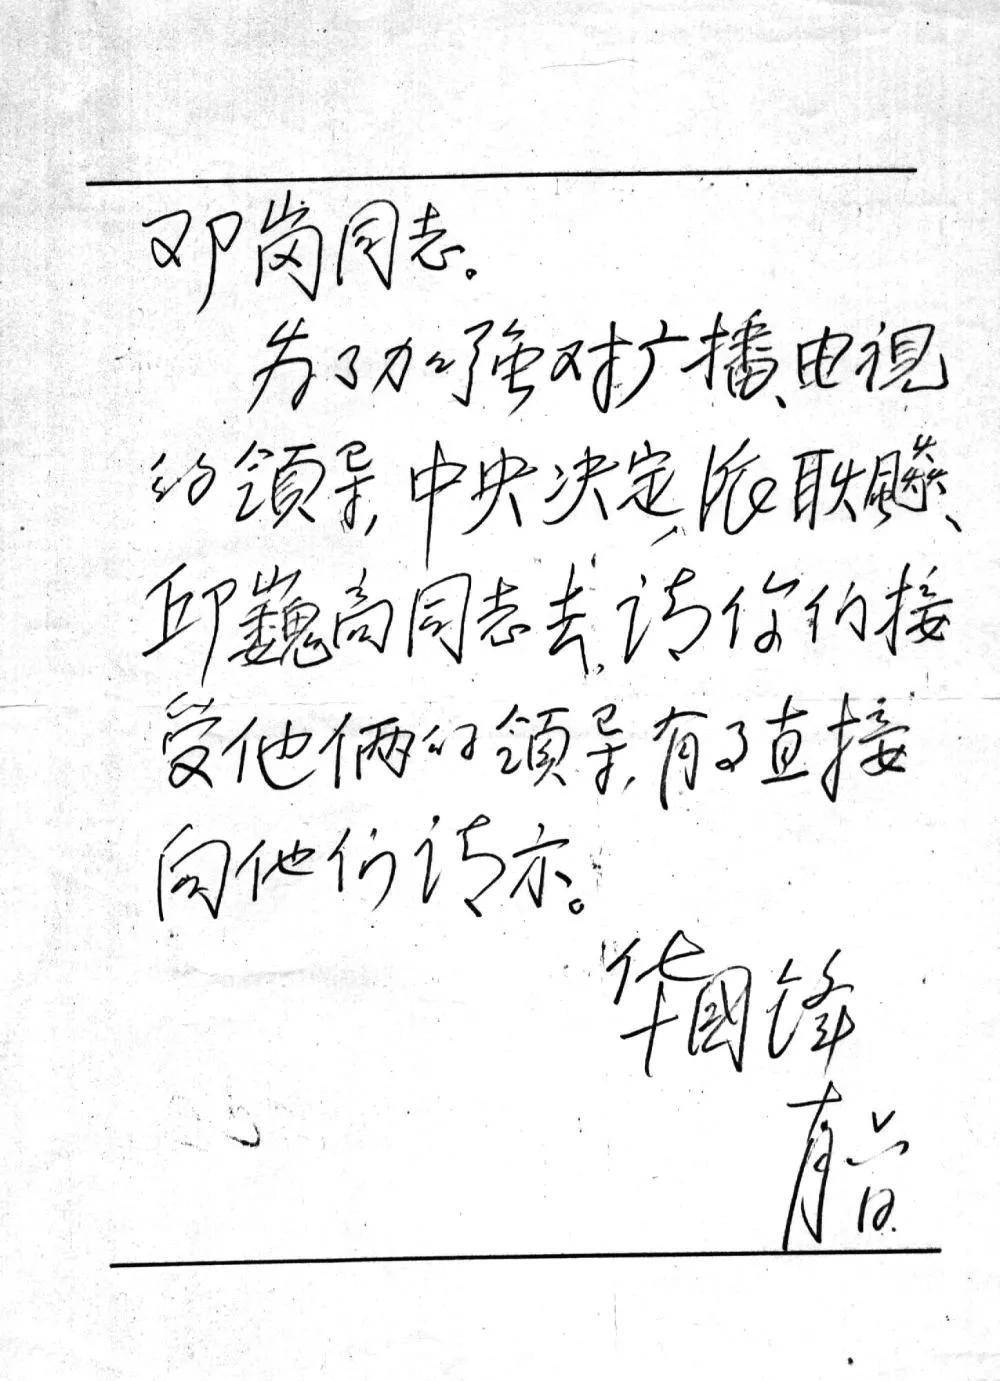 邓岗同志。
为了加强对广播、电视
的領导,中央决定,派耿飚、
邱巍高同志去,请你们接
受他俩的領导,有事直接
向他们请示。
华國锋
十月六日